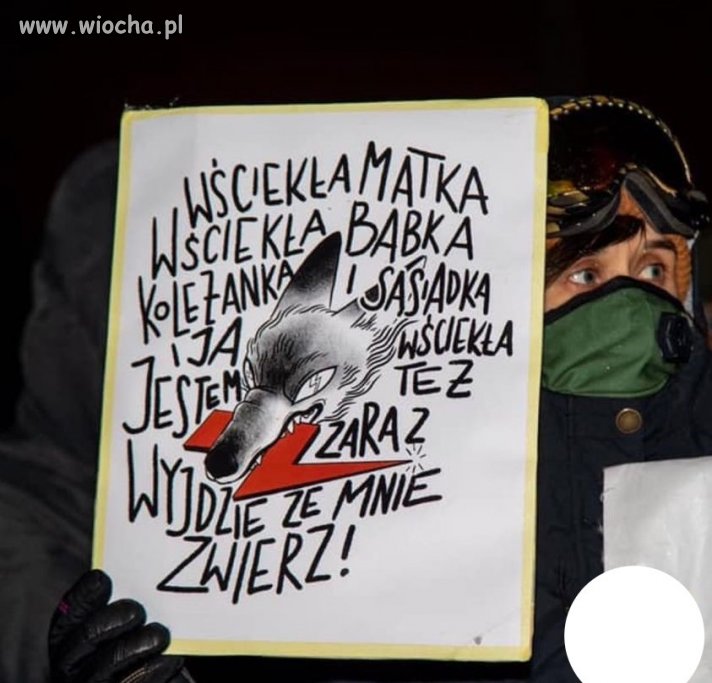 www.wiocha.pl
WŚCIEKŁA MATKA
WŚCIEKŁA BABKA
KOLEŻANKA I SĄSIADKA
I JA WŚCIEKŁA
JESTEM TEŻ
ZARAZ
WYJDZIE ZE MNIE
ZWIERZ!